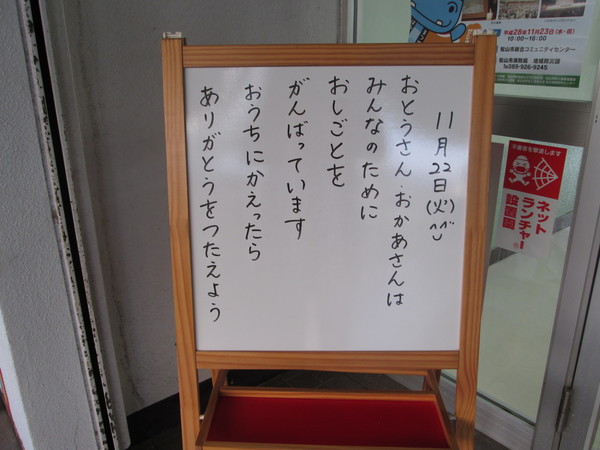 11月22日(火) ^^
おとうさん・おかあさんは
みんなのために
おしごとを
がんばっています
おうちにかえったら
ありがとうをつたえよう
平成28年11月23日(水・祝)
10:00～16:00
松山市総合コミュニティセンター
松山市消防局 地域消防課
TEL089-926-9245
不審者を撃退します
ネット
ランチャー
設置園